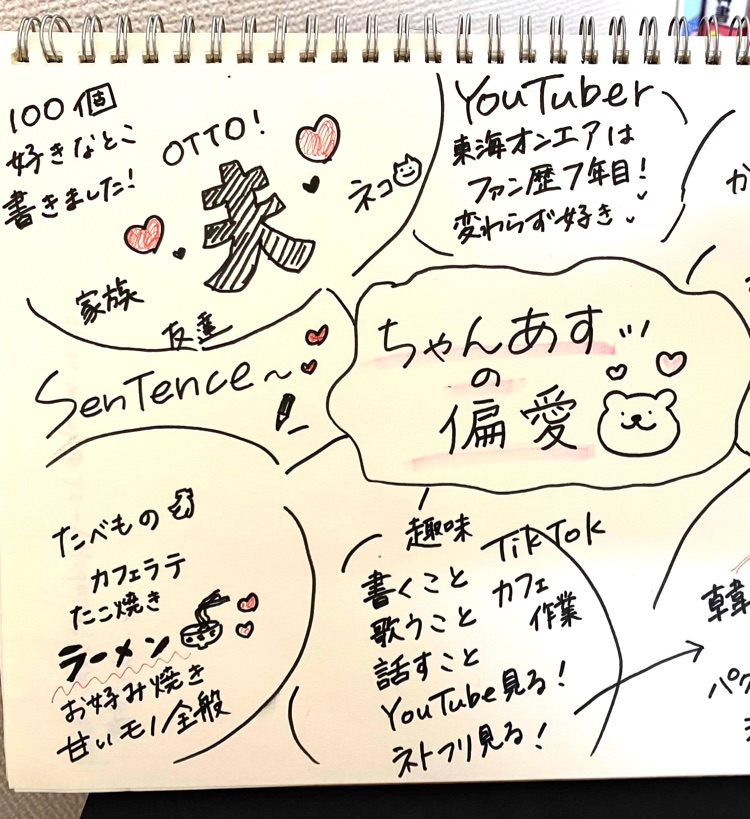 100個
好きなとこ
書きました!
OTTO!
夫
ネコ
家族
友達
YouTuber
東海オンエアは
ファン歴7年目!
変わらず好き
か
ちゃんあす
の
偏愛
Sentence~
たべもの
カフェラテ
たこ焼き
ラーメン
お好み焼き
甘いモノ全般
趣味
書くこと
歌うこと
話すこと
YouTube見る!
ネトフリ見る!
TikTok
カフェ
作業
韓
パク